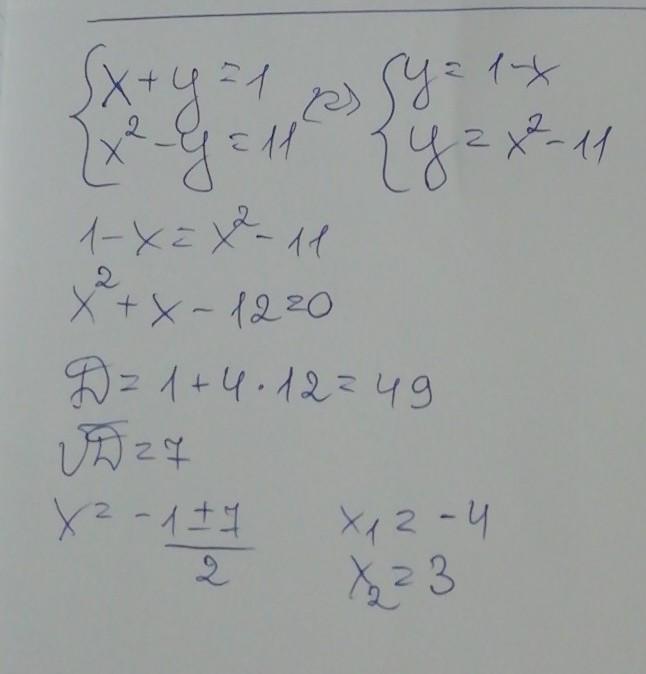 {x+y=1 <=> {y=1-x
{x²-y=11 {y=x²-11
1-x=x²-11
x²+x-12=0
D=1+4·12=49
√D=7
x=-1±7/2 x₁=-4
x₂=3